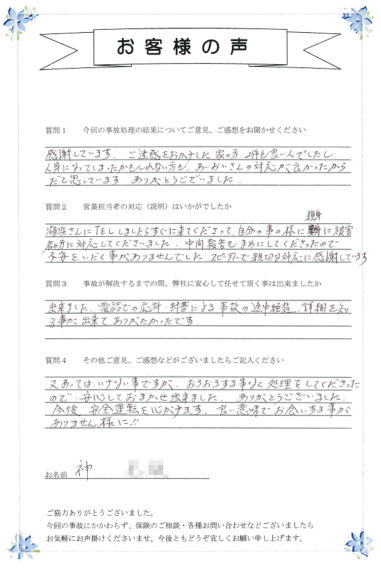 お客様の声
質問1 今回の事故処理の結果についてご意見、ご感想をお聞かせください
感謝しています。ご迷惑をおかけした 方 も良い人でしたし
人身になってしまったかもしれない方も、あいおいさんの対応が良かったから
だと思っています ありがとうございました。
質問2 営業担当者の対応(説明)はいかがでしたか
親身
さんにTELしましたらすぐに来てくださって、自分の事の様に 被害
者の方に対応してくださいました。中間報告もまめにしてくださったので
不安をいだく事がありませんでした。スピーディーで親切な対応に感謝しています
質問3 事故が解決するまでの間、弊社に安心して任せて頂く事は出来ましたか
出来ました。電話での応対 封書による事故の途中経過、詳細を知
る事が出来てありがたかったです。
質問4 その他ご意見、ご感想などがございましたらご記入ください
又あってはいけない事ですが、おろおろする事なく処理をしてくださった
ので、安心しておまかせ出来ました。ありがとうございました。
今後 安全運転を心がけます。悪い意味でお会いする事が
ありません様に!!
お名前 神
ご協力ありがとうございました。
今回の事故にかかわらず、保険のご相談・各種お問い合わせなどございましたら
お気軽にお声掛けくださいませ。今後ともどうぞ宜しくお願い申し上げます。